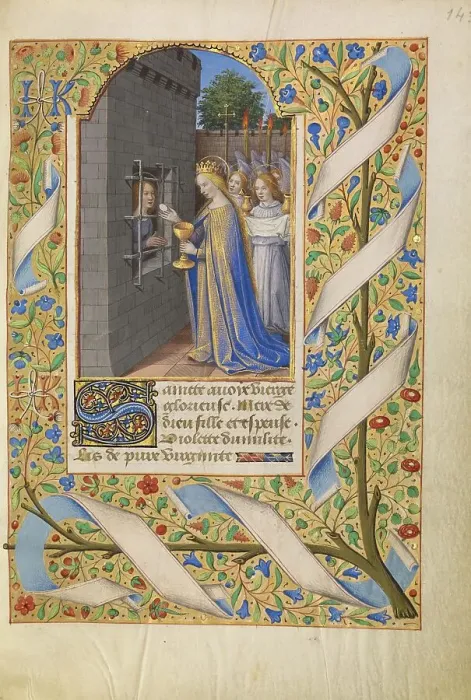 IK
Saincte auoye vierge
glorieuse. Mere de
dieu fille et espeuse.
Violette dumilite.
Lis de pure virginite